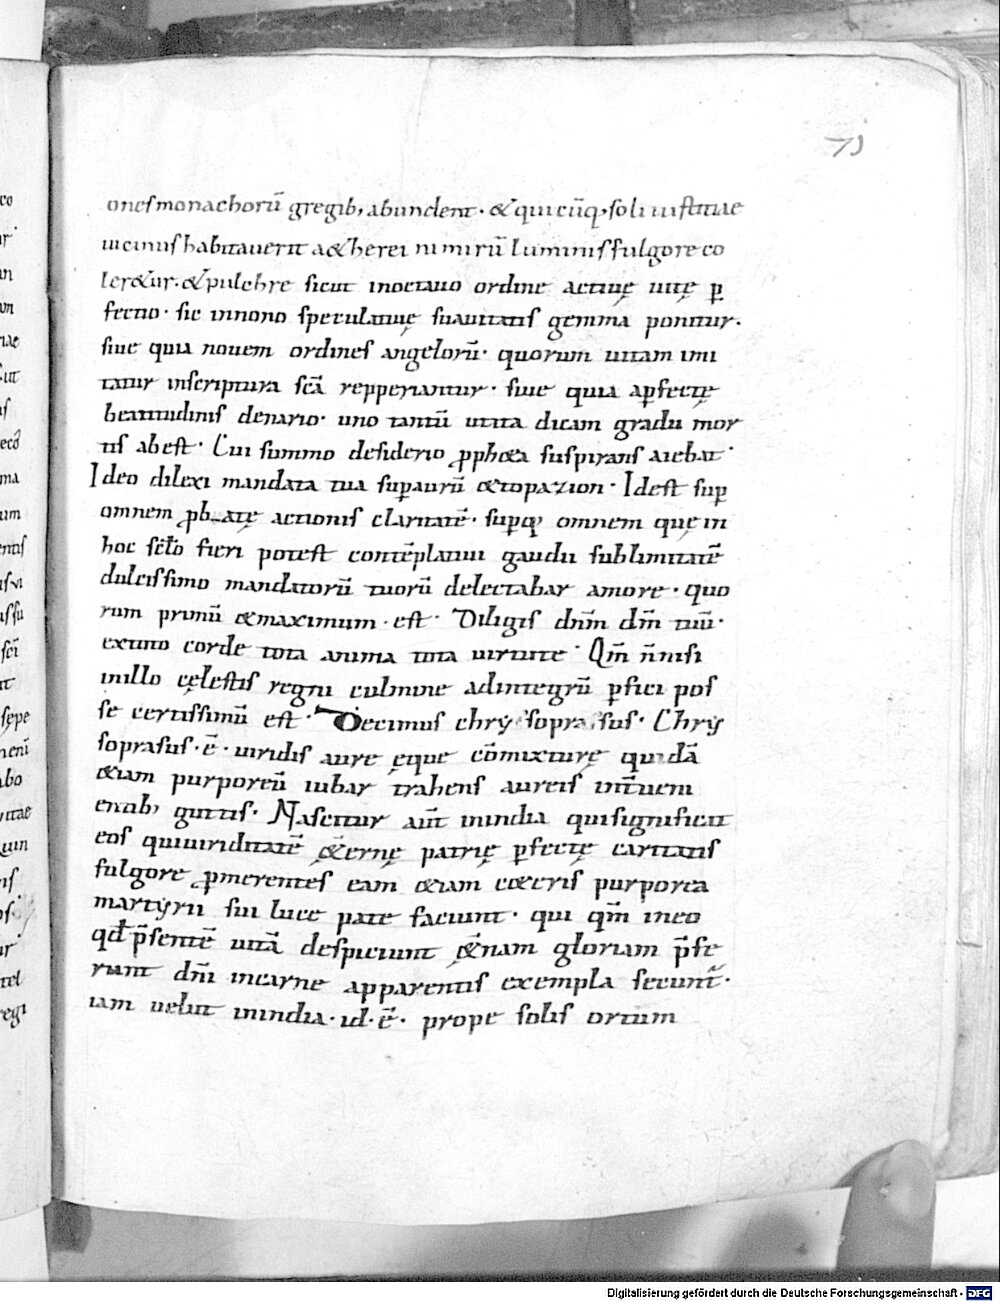 71
onesmonachorū gregib; abundent· & quicūq; soli iustitiae
uicinus habitauerit a&herei nimirū luminis fulgore co
ler&ur· & pulchre sicut inoctauo ordine actiuę uitę ꝑ
fectio· sic innono speculatiuę suauitatis gemma ponitur·
siue quia nouem ordines angelorū· quorum uitam imi
tatur inscriptura scā repperiantur· siue quia aꝑfectę
beatitudinis denario· uno tantū utita dicam gradu mor
tis abest· Cui summo desiderio ꝓph&a suspirans aiebat·
Ideo dilexi mandata tua suꝑaurū &topazion· Idest suꝑ
omnem ꝓbatę actionis claritatē· suꝑq; omnem quę in
hoc scło fieri potest contēplatiui gaudii sublimitatē
dulcissimo mandatorū tuorū delectabar amore· quo
rum primū &maximum· est· Diligis dn̄m dm̄ tuū·
extoto corde tota anima tota uirtute· Qm̄ n̄nisi
inillo cęlestis regni culmine adintegrū ꝑfici pos
se certissimū est· Decimus chrysoprassus· Chry
soprasus· ē· uiridis aure ęque cōmixturę quidā
&iam purporeū iubar trahens aureis int̄ueni
entib; guttis· Nascitur aūt inindia quisignificat
eos quiuiriditatē &ernę patrię ꝑfectę caritatis
fulgore ꝓmerentes eam &iam c&eris purporea
martyrii sui luce pate faciunt· qui qm̄ ineo
qđ p̄sentē uitā despiciunt &̨nam gloriam p̄fe
runt dn̄i incarne apparentis exempla secunt̄·
iam uelut inindia· id· ē· prope solis ortum
Digitalisierung gefördert durch die Deutsche Forschungsgemeinschaft - DFG